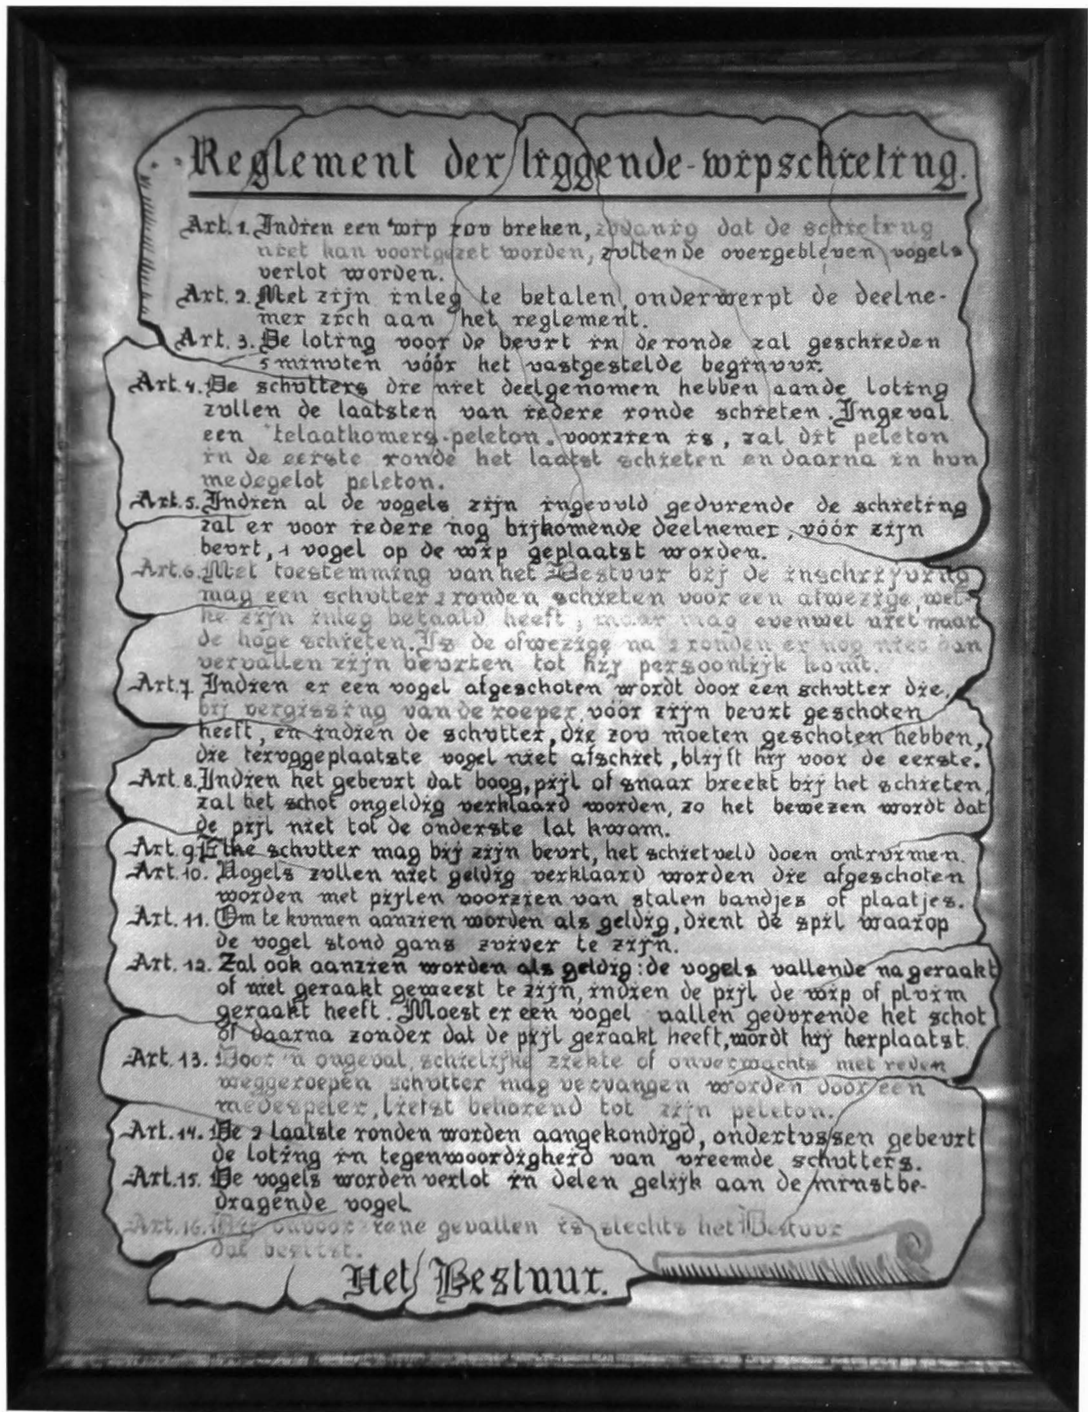 Reglement der liggende-wipschieting.
Art. 1. Indien een wip zou breken, zodanig dat de schieting
niet kan voortgezet worden, zullen de overgebleven vogels
verlot worden.
Art. 2. Met zijn inleg te betalen, onderwerpt de deelne-
mer zich aan het reglement.
Art. 3. De loting voor de beurt in de ronde zal geschieden
5 minuten vóór het vastgestelde beginuur.
Art. 4. De schutters die niet deelgenomen hebben aan de loting
zullen de laatsten van iedere ronde schieten. Ingeval
een "telaatkomers-peleton" voorzien is, zal dit peleton
in de eerste ronde het laatst schieten en daarna in hun
medegelot peleton.
Art. 5. Indien al de vogels zijn ingevuld gedurende de schieting
zal er voor iedere nog bijkomende deelnemer, vóór zijn
beurt, 1 vogel op de wip geplaatst worden.
Art. 6. Met toestemming van het Bestuur bij de inschrijving
mag een schutter 2 ronden schieten voor een afwezige, wel-
ke zijn inleg betaald heeft, maar mag evenwel niet naar
de hoge schieten. Is de afwezige na 2 ronden er nog niet dan
vervallen zijn beurten tot hij persoonlijk komt.
Art. 7. Indien er een vogel afgeschoten wordt door een schutter die,
bij vergissing van de roeper, vóór zijn beurt geschoten
heeft, en indien de schutter, die zou moeten geschoten hebben,
die teruggeplaatste vogel niet afschiet, blijft hij voor de eerste.
Art. 8. Indien het gebeurt dat boog, pijl of snaar breekt bij het schieten,
zal het schot ongeldig verklaard worden, zo het bewezen wordt dat
de pijl niet tot de onderste lat kwam.
Art. 9. Elke schutter mag bij zijn beurt, het schietveld doen ontruimen.
Art. 10. Vogels zullen niet geldig verklaard worden die afgeschoten
worden met pijlen voorzien van stalen bandjes of plaatjes.
Art. 11. Om te kunnen aanzien worden als geldig, dient de spil waarop
de vogel stond gans zuiver te zijn.
Art. 12. Zal ook aanzien worden als geldig: de vogels vallende na geraakt
of niet geraakt geweest te zijn, indien de pijl de wip of pluim
geraakt heeft. Moest er een vogel vallen gedurende het schot
of daarna zonder dat de pijl geraakt heeft, wordt hij herplaatst.
Art. 13. Door 'n ongeval, schielijke ziekte of onverwachts met reden
weggeroepen schutter mag vervangen worden door een
medespeler, liefst behorend tot zijn peleton.
Art. 14. De 2 laatste ronden worden aangekondigd, ondertussen gebeurt
de loting in tegenwoordigheid van vreemde schutters.
Art. 15. De vogels worden verlot in delen gelijk aan de minst be-
dragende vogel.
Art. 16. Bij onvoorziene gevallen is slechts het Bestuur
dat beslist.
Het Bestuur.